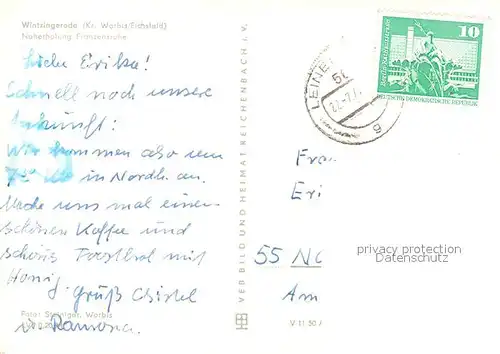 Wintzingerode (Kr. Worbis/Eichsfeld)
Naherholung Franzensruhe
Liebe Erika!
Schnell noch unsere
Ankunft:
Wir kommen also um
in Nordh. an.
Mache uns mal einen
schönen Kaffee und
schönes Toastbrot mit
Honig.
Gruß Christel
u. Ramona.
Foto: Worbis
VEB BILD UND HEIMAT REICHENBACH i. V.
V 11 50
LEINE
10
DEUTSCHE DEMOKRATISCHE REPUBLIK
g
Frau
Eri
55 NO
Am
privacy protection
Datenschutz